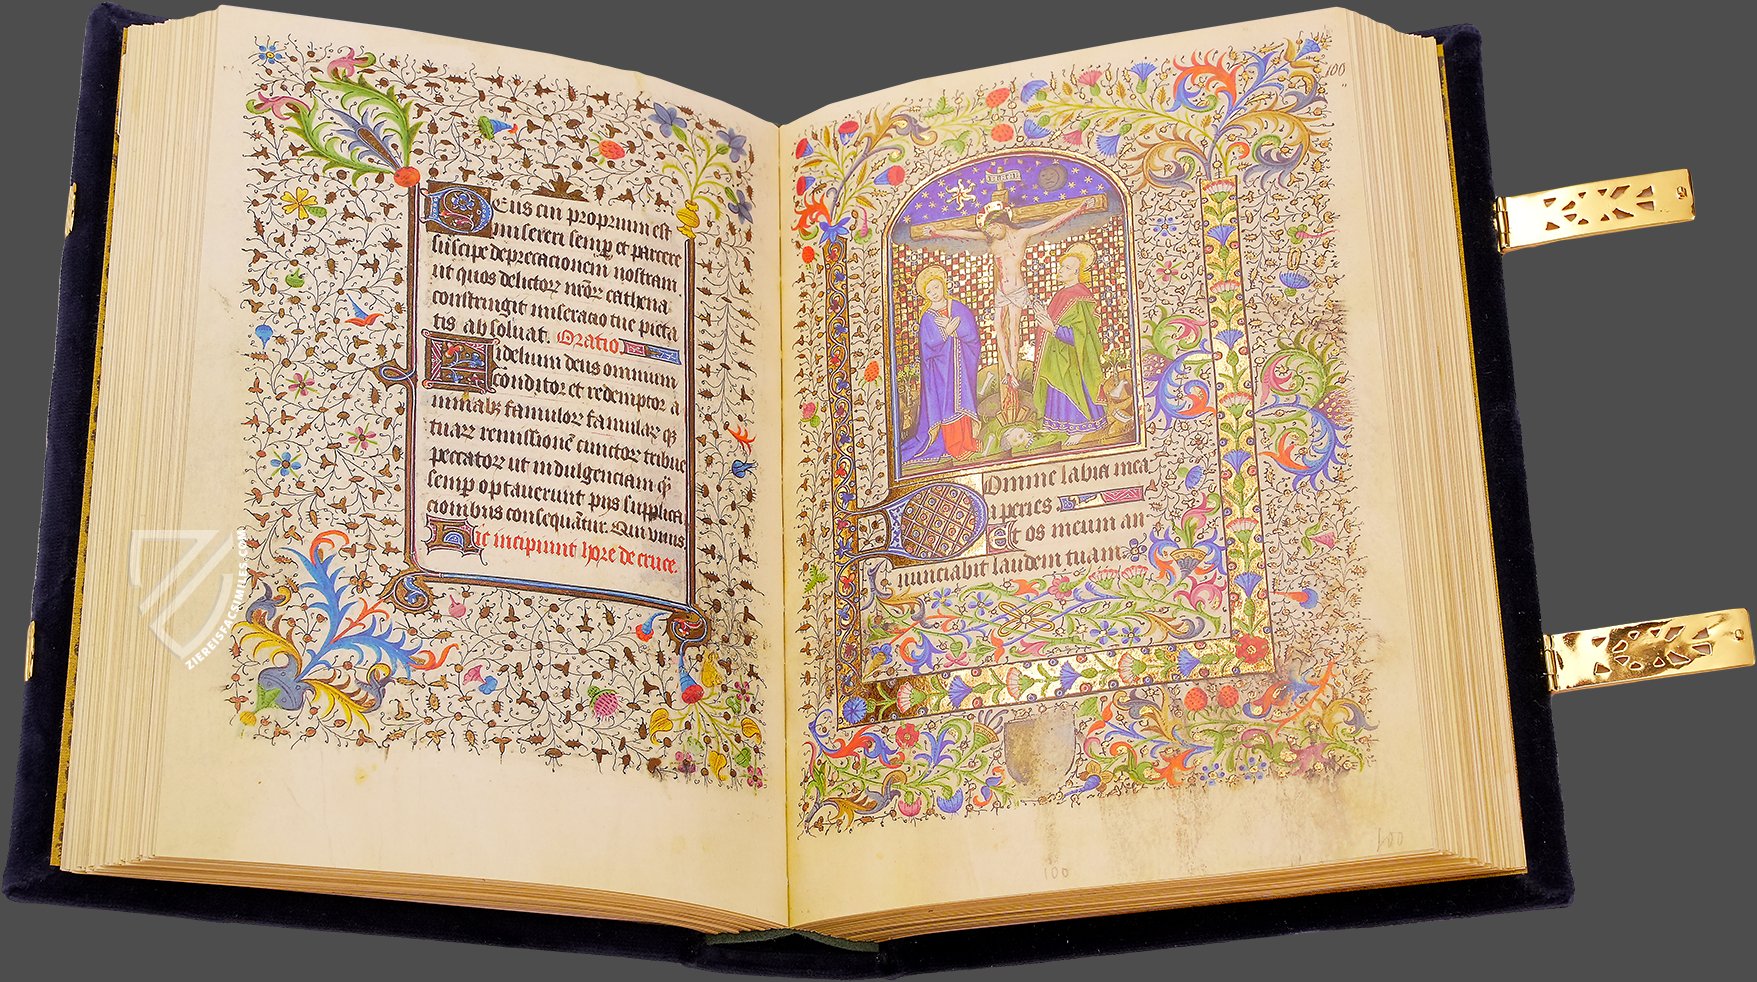 Deus cui proprium est
misereri semp et parcere
suscipe deprecationem nostram
ut quos delictoꝝ nr̄oꝝ cathena
constringit miseratio tue pieta
tis absoluat. Oratio
Fidelium deus omnium
conditor et redemptor a
nimabꝫ famuloꝝ famulaꝝ qꝫ
tuaꝝ remissionē cunctoꝝ tribue
peccatoꝝ ut indulgenciam qͣ
semp optauerunt pijs supplica
cionibus consequātur. Qui viuis
Hic incipiunt hore de cruce.
ZIEREISFACSIMILES.COM
100
Domine labia mea
aperies.
Et os meum an
nunciabit laudem tuam
100
100